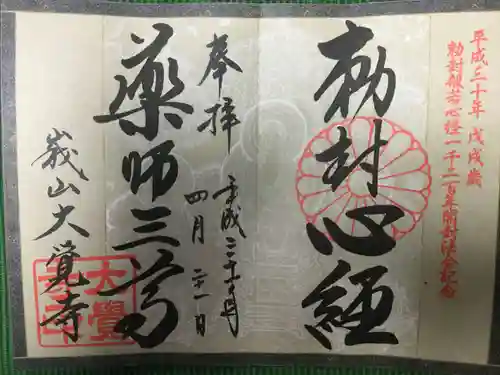 平成三十年 戊戌歳
勅封般若心経一千二百年開封法会記念
勅封心経
奉拝
平成三十年
四月二十一日
薬師三尊
嵯山大覺寺
大覺
寺